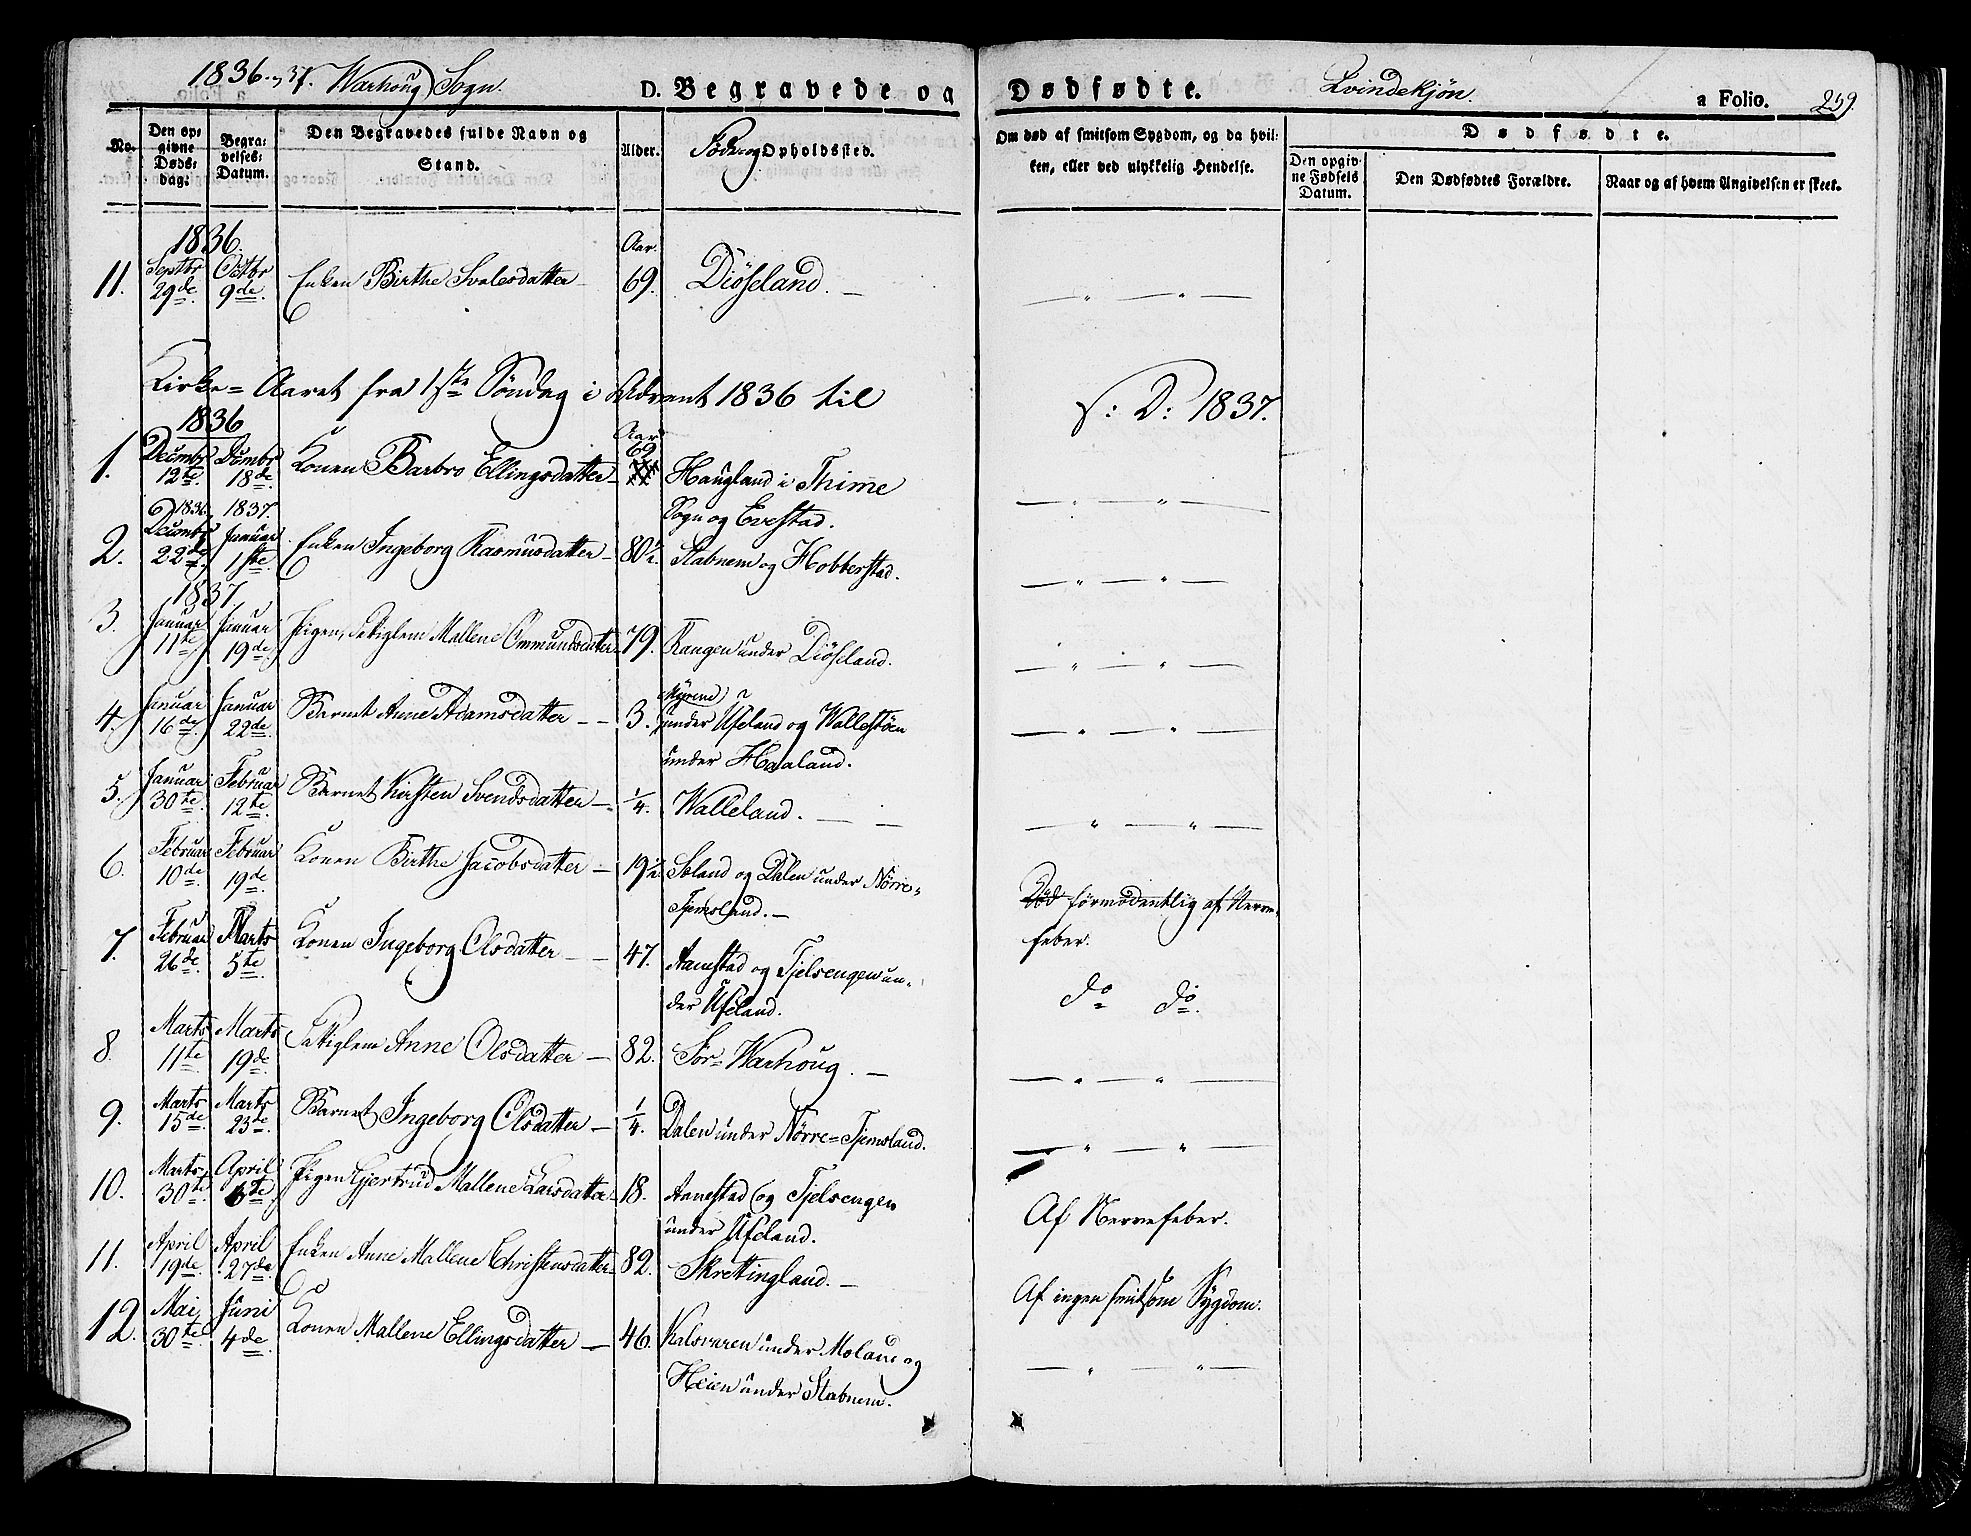 1836 og 37. Warhoug Sogn.
D. Begravede og Dødfødte.
Qvindekjøn.
a Folio. 259.
No.
Den opgivne Dødsdag.
Begravelses Datum.
Den Begravedes fulde Navn og Stand.
Alder.
Føde og Opholdssted.
Om død af smitsom Sygdom, og da hvilken, eller ved ulykkelig Hendelse.
Dødfødte.
Den opgivne Fødsels Datum.
Den Dødfødtes Forældre.
Naar og af hvem Angivelsen er skeet.
1836. Aar.
11. Septbr 29de Octbr 9de. Enken Birthe Svalesdatter 69. Diøseland. — " — " —
Kirke-Aaret fra 1ste Søndag i Advent 1836 til s: D: 1837.
1836 Aar
1. Decembr 12te Decembr 18de Konen Barbro Ellingsdatter 69 Haugland i Thime
Sogn og Evestad. — " — " —
2. 1836. Decembr 22de 1837 Januar 1ste. Enken Ingeborg Rasmusdatter 80½. Stabnem og Hobberstad. — " — " —
1837
3. Januar 11te Januar 19de Pigen, Fattiglem Mallene Ommundsdatter 79. Rangen under Diøseland. — " — " —
4. Januar 16de Januar 22de Barnet Anne Adamsdatter — 3. Myrene
under Ueland og Wallestøen
under Haaland. — " — " —
5. Januar 30te Februar 12te Barnet Kirsten Svendsdatter — ¼. Walleland. — — " — " —
6. Februar 10de Februar 19de Konen Birthe Jacobsdatter — 19½ Soland og Dalen under Nørre-
Tjemsland. — Død formodentlig af Nerve-
feber.
7. Februar 26de Marts 5te Konen Ingeborg Olsdatter — 47. Aanestad og Tjelsengen un-
der Ueland. do do.
8. Marts 11te Marts 19de Fattiglem Anne Olsdatter — 82. Sør-Warhoug. — — " — " —
9. Marts 15de Marts 23de Barnet Ingeborg Olsdatter — ¼. Dalen under Nørre-Tjemsland. — " — " —
10. Marts 30te April 6te Pigen Gjertrud Mallene Larsdatter 18. Aanestad og Tjelsengen
under Ueland. Af Nervefeber.
11. April 19de April 27de Enken Anne Mallene Christensdatter 82. Skrettingland. — Af ingen smitsom Sygdom.
12. Mai 30te Juni 4de Konen Mallene Ellingsdatter — 46. Kalsvaren under Molaue og
Heien under Stabnem. — " — " —